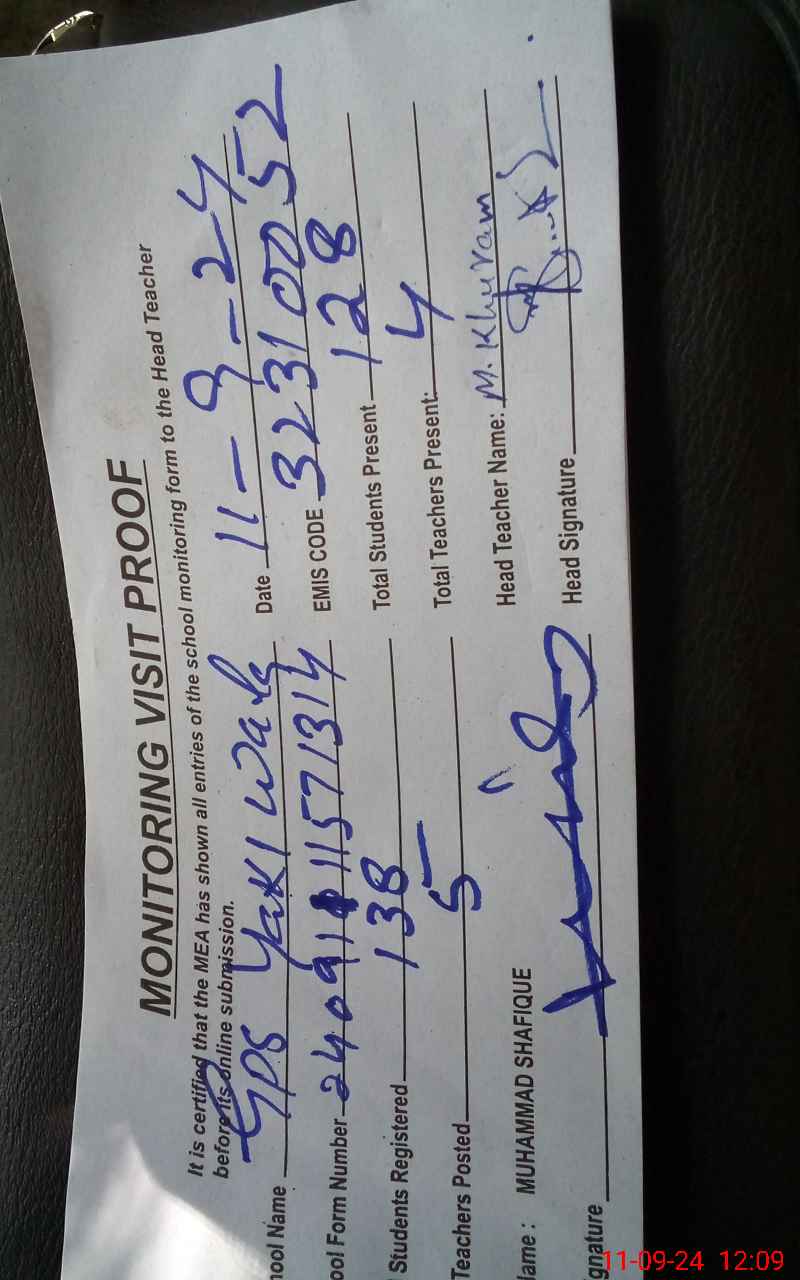 MONITORING VISIT PROOF
It is certified that the MEA has shown all entries of the school monitoring form to the Head Teacher
before its online submission.
hool Name GPS Yaki Wala Date 11-9-24
ool Form Number 240911 11571314 EMIS CODE 32310052
Students Registered 138 Total Students Present 128
Teachers Posted 5 Total Teachers Present: 4
lame : MUHAMMAD SHAFIQUE Head Teacher Name: M. Khuram
gnature Head Signature
11-09-24 12:09